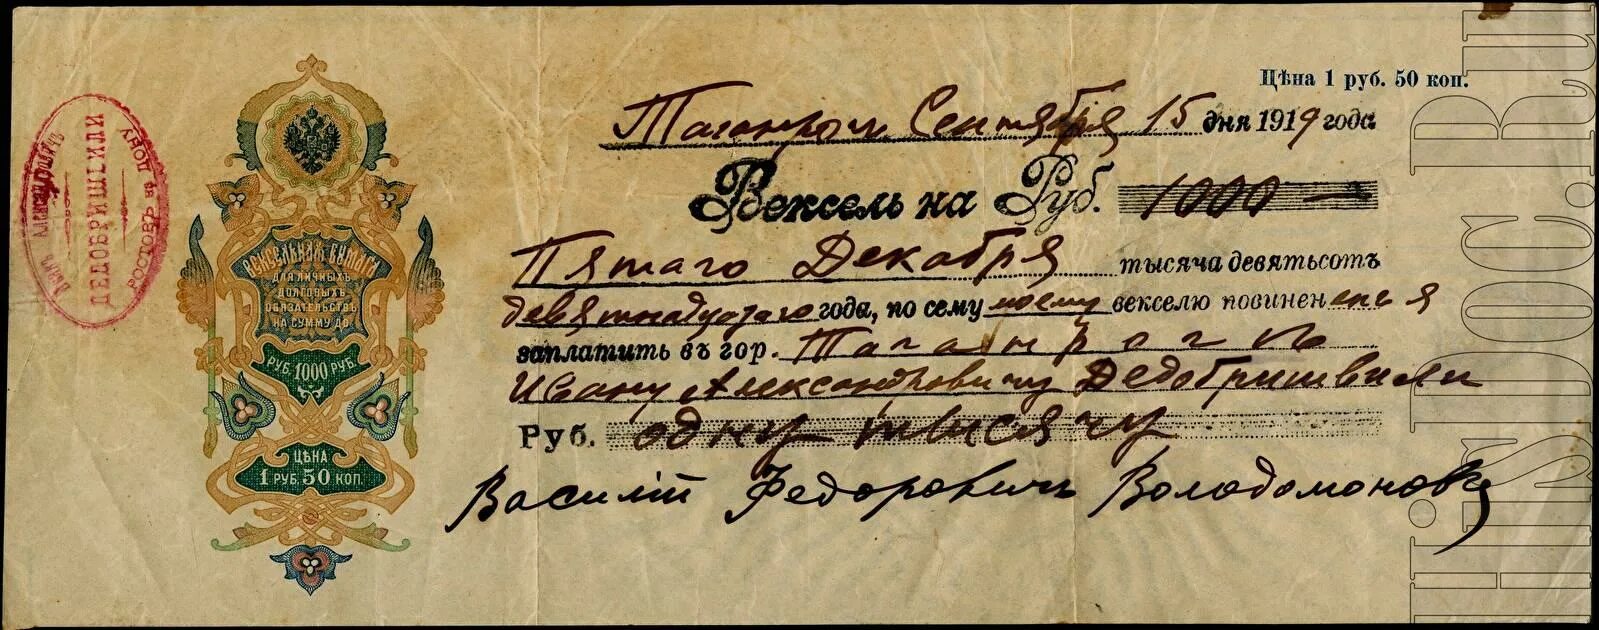 Цѣна 1 руб. 50 коп.
Таганрогъ Сентября 15 дня 1919 года
Вексель на Руб. 1000
Пятаго Декабря тысяча девятьсотъ
девятнадцатаго года, по сему моему векселю повиненъ я
заплатить въ гор. Таганрогъ
Ивану Александровичу Дедобришвили
Руб. одну тысячу
Василій Федоровичъ Володомоновъ
ВЕКСЕЛЬНАЯ БУМАГА
ДЛЯ ЛИЧНЫХЪ
ДОЛГОВЫХЪ
ОБЯЗАТЕЛЬСТВЪ
НА СУММУ ДО
РУБ. 1000 РУБ.
ЦѢНА
1 РУБ. 50 КОП.
ДЕДОБРИШВИЛИ
РОСТОВЪ н/ДОНУ
HiSDOC.RU